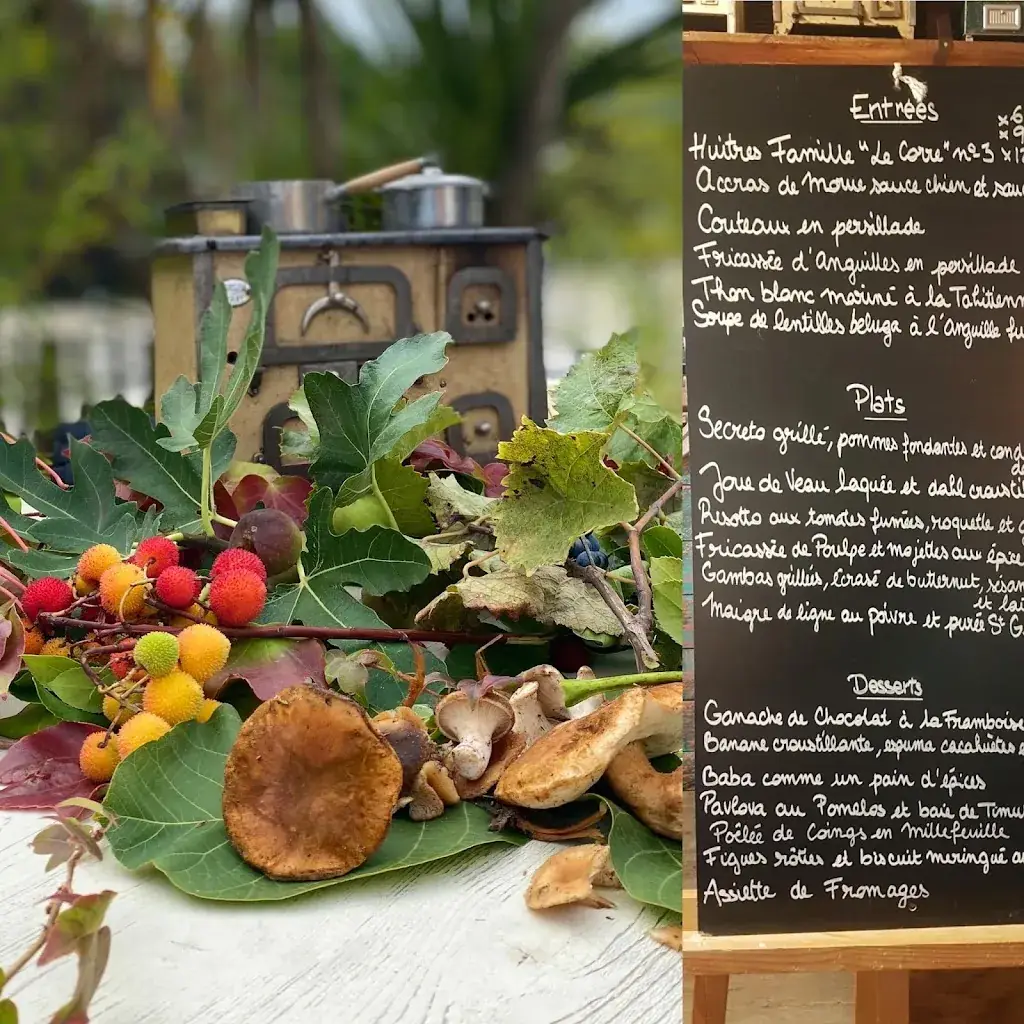 Entrées
x6
x9
Huîtres Famille "Le Corre" n°3 x12
Accras de Morue sauce chien et sau
Couteaux en persillade
Fricassée d'Anguilles en persillade
Thon blanc mariné à la Tahitienn
Soupe de lentilles beluga à l'Anguille fu
Plats
Secreto grillé, pommes fondantes et cond
Joue de Veau laquée et dahl croustil
Risotto aux tomates fumées, roquette et
Fricassée de Poulpe et mojettes aux épice
Gambas grillées, écrasé de butternut, sésam
et lai
Maigre de ligne au poivre et purée St G
Desserts
Ganache de Chocolat à la Framboise
Banane croustillante, espuma cacahuètes e
Baba comme un pain d'épices
Pavlova au Pomelos et baie de Timu
Poêlée de Coings en millefeuille
Figues rôties et biscuit meringué a
Assiette de Fromages